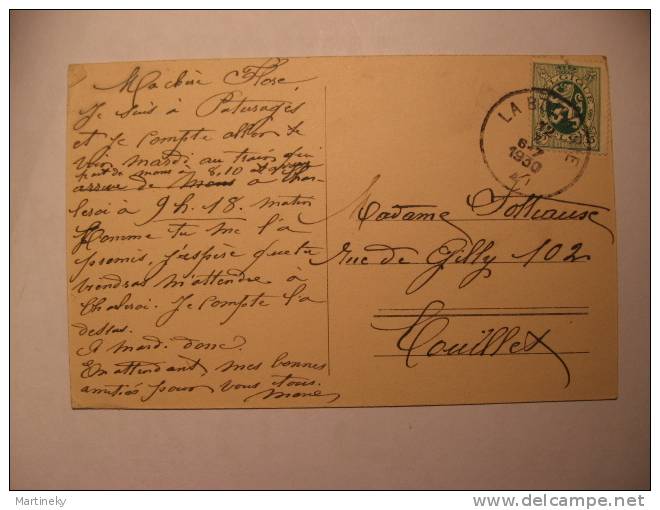 Ma chère Flore,
Je suis à Paturages
et je compte aller te
voir mardi au train qui
part de mons à 8,10 et
arrive de mons à Char-
leroi à 9 h. 18. matin
Comme tu me l'a
promis, j'espère que tu
viendras m'attendre à
Charleroi. Je compte la
dessus.
A mardi donc.
En attendant, mes bonnes
amitiés pour vous tous.
BELGIQUE
LA B
6-7
1930
Madame
rue de Gilly 102
Couillet
Martineky
www.delcampe.net